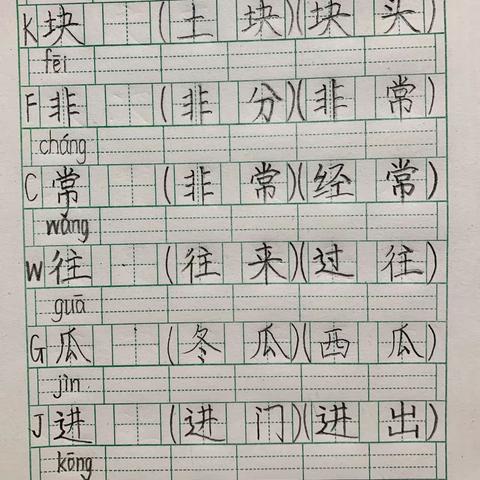 K块 (土块)(块头)
fēi
F非 (非分)(非常)
cháng
C常 (非常)(经常)
wǎng
W往 (往来)(过往)
guā
G瓜 (冬瓜)(西瓜)
jìn
J进 (进门)(进出)
kōng